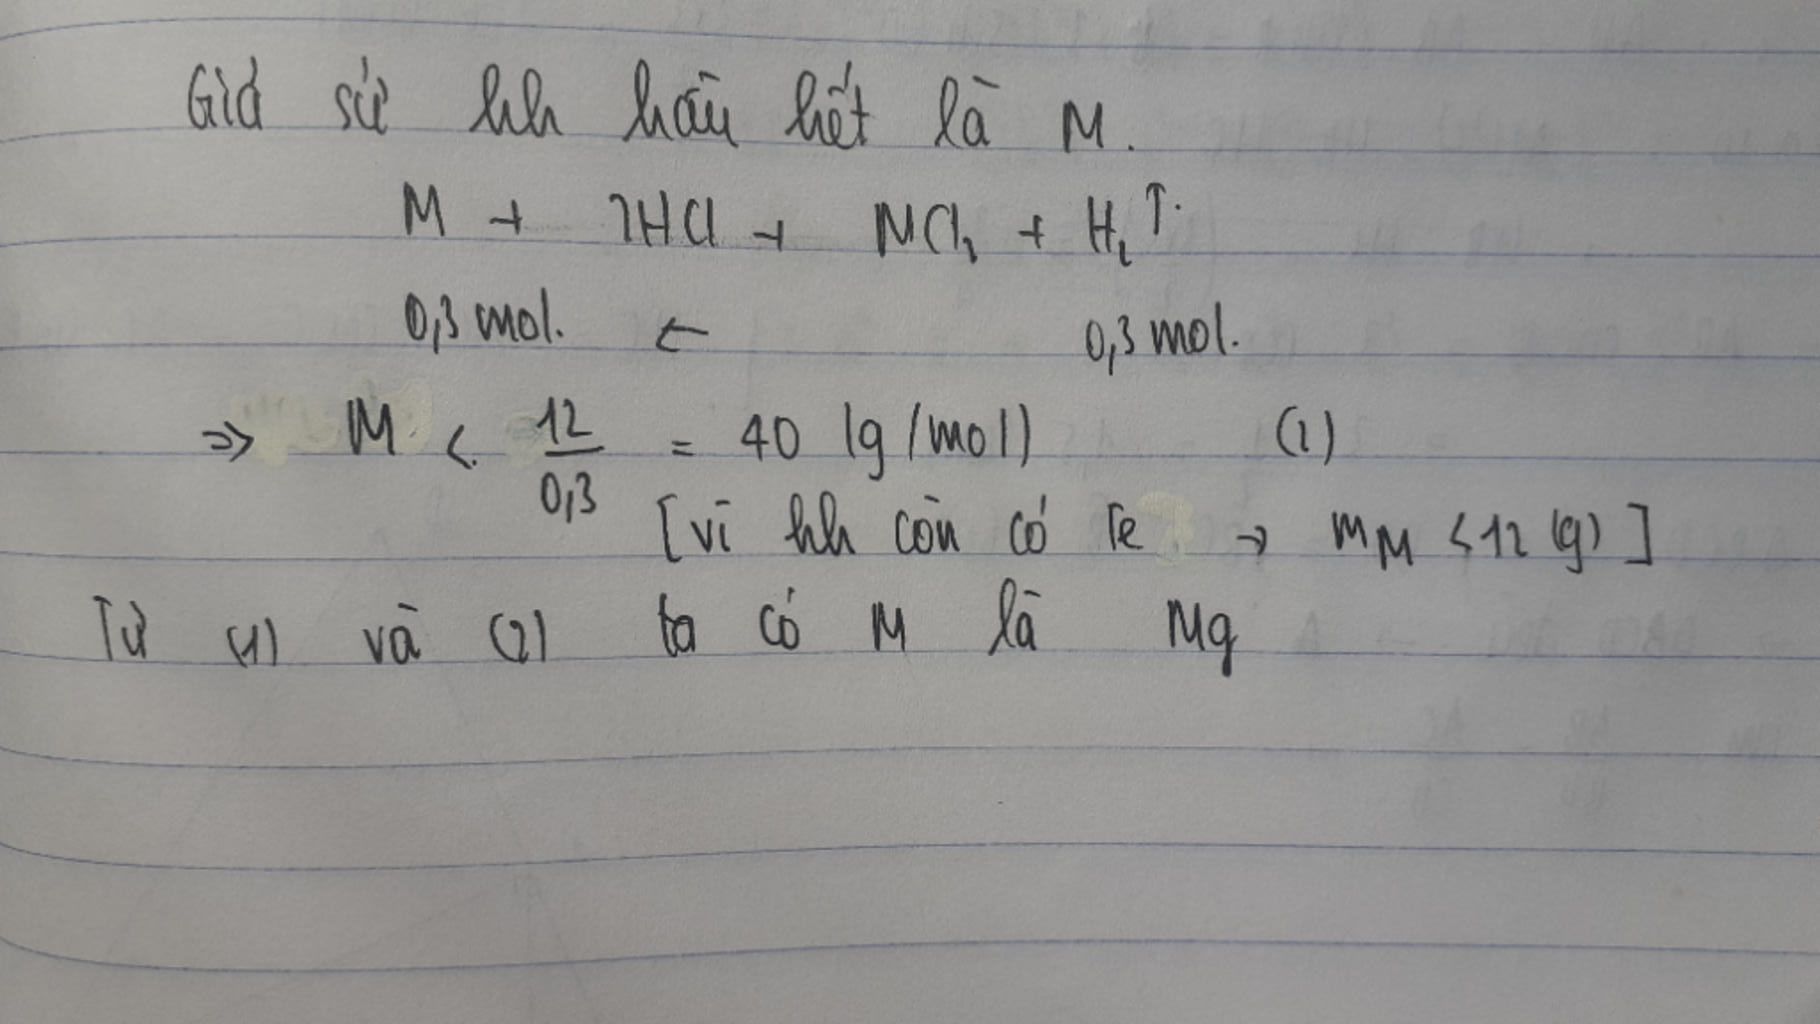 Giả sử hh hầu hết là M.
M + 2HCl → MCl₂ + H₂↑.
0,3 mol. ← 0,3 mol.
=> M < 12/0,3 = 40 (g/mol) (2)
[vì hh còn có Fe → mM < 12 (g)]
Từ (1) và (2) ta có M là Mg